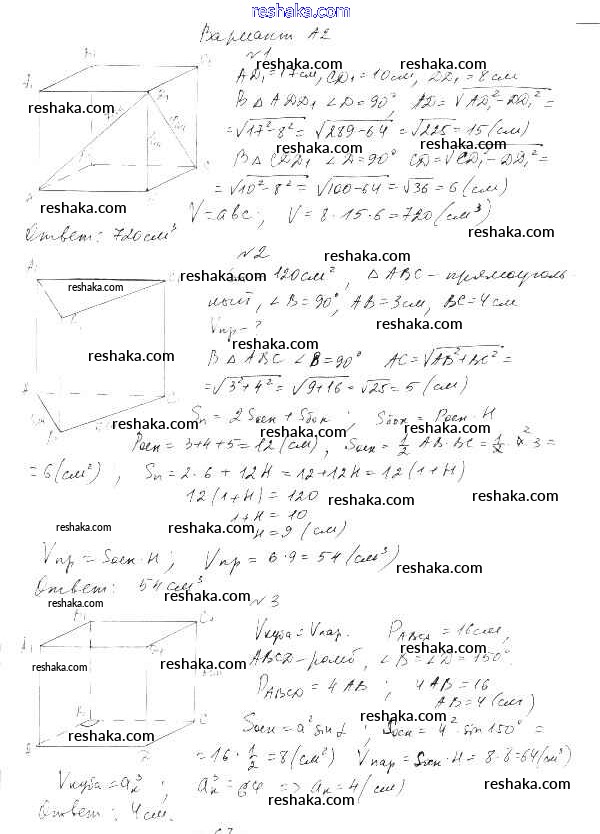 reshaka.com
Вариант А2
№1
AD₁=17см, CD₁=10см, DD₁=8см
В △ADD₁ ∠D=90°, AD=√AD₁²-DD₁²=
=√17²-8²=√289-64=√225=15(см)
В △CDD₁ ∠D=90° CD=√CD₁²-DD₁²=
=√10²-8²=√100-64=√36=6(см)
V=abc; V=8·15·6=720(см³)
Ответ: 720см³
№2
120см², △ABC-прямоуголь-
ный, ∠B=90°, AB=3см, BC=4см
Vпр-?
В △ABC ∠B=90° AC=√AB²+BC²=
=√3²+4²=√9+16=√25=5(см)
Sп=2Sосн+Sбок; Sбок=Pосн·H
Pосн=3+4+5=12(см), Sосн=1/2 AB·BC=1/2·4·3=
=6(см²); Sп=2·6+12H=12+12H=12(1+H)
12(1+H)=120
1+H=10
H=9(см)
Vпр=Sосн·H; Vпр=6·9=54(см³)
Ответ: 54см³
№3
Vкуба=Vпар. PABCD=16см,
ABCD-ромб, ∠B=∠D=150°.
PABCD=4AB; 4AB=16
AB=4(см)
Sосн=a²sinα; Sосн=4²·sin150°=
=16·1/2=8(см²) Vпар=Sосн·H=8·8=64(см³)
Vкуба=aк³; aк³=64 => aк=4(см)
Ответ: 4см.